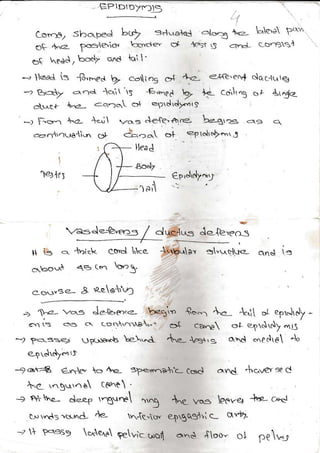 EPIDIDYMIS
4
Coma, Shaped body situated along the lateral part
of the posterior border of testis and consist
of head, body and tail.
→ Head is formed by coiling of the efferent ductules
→ Body and tail is formed by the coiling of single
duct the canal of epididymis
→ From the tail vas deference begins as a
continuation of canal of epididymis
Head
Body
Testis
Epididymis
Tail
Vas deferens / ductus deferens
It is a thick cord like tubular structure and is
about 45 cm long.
course & Relation
→ The vas deference begin from the tail of epididy-
mis as a continuati of canal of epididymis
→ passes upwards behind the testis and medial to
epididymis
→ Enter to the spermatic cord and traversed
the inguinal canal.
→ At the deep inguinal ring the vas leaves the cord
winds round the inferior epigastric arty
→ It passy lateral pelvic wall and floor of pelvis